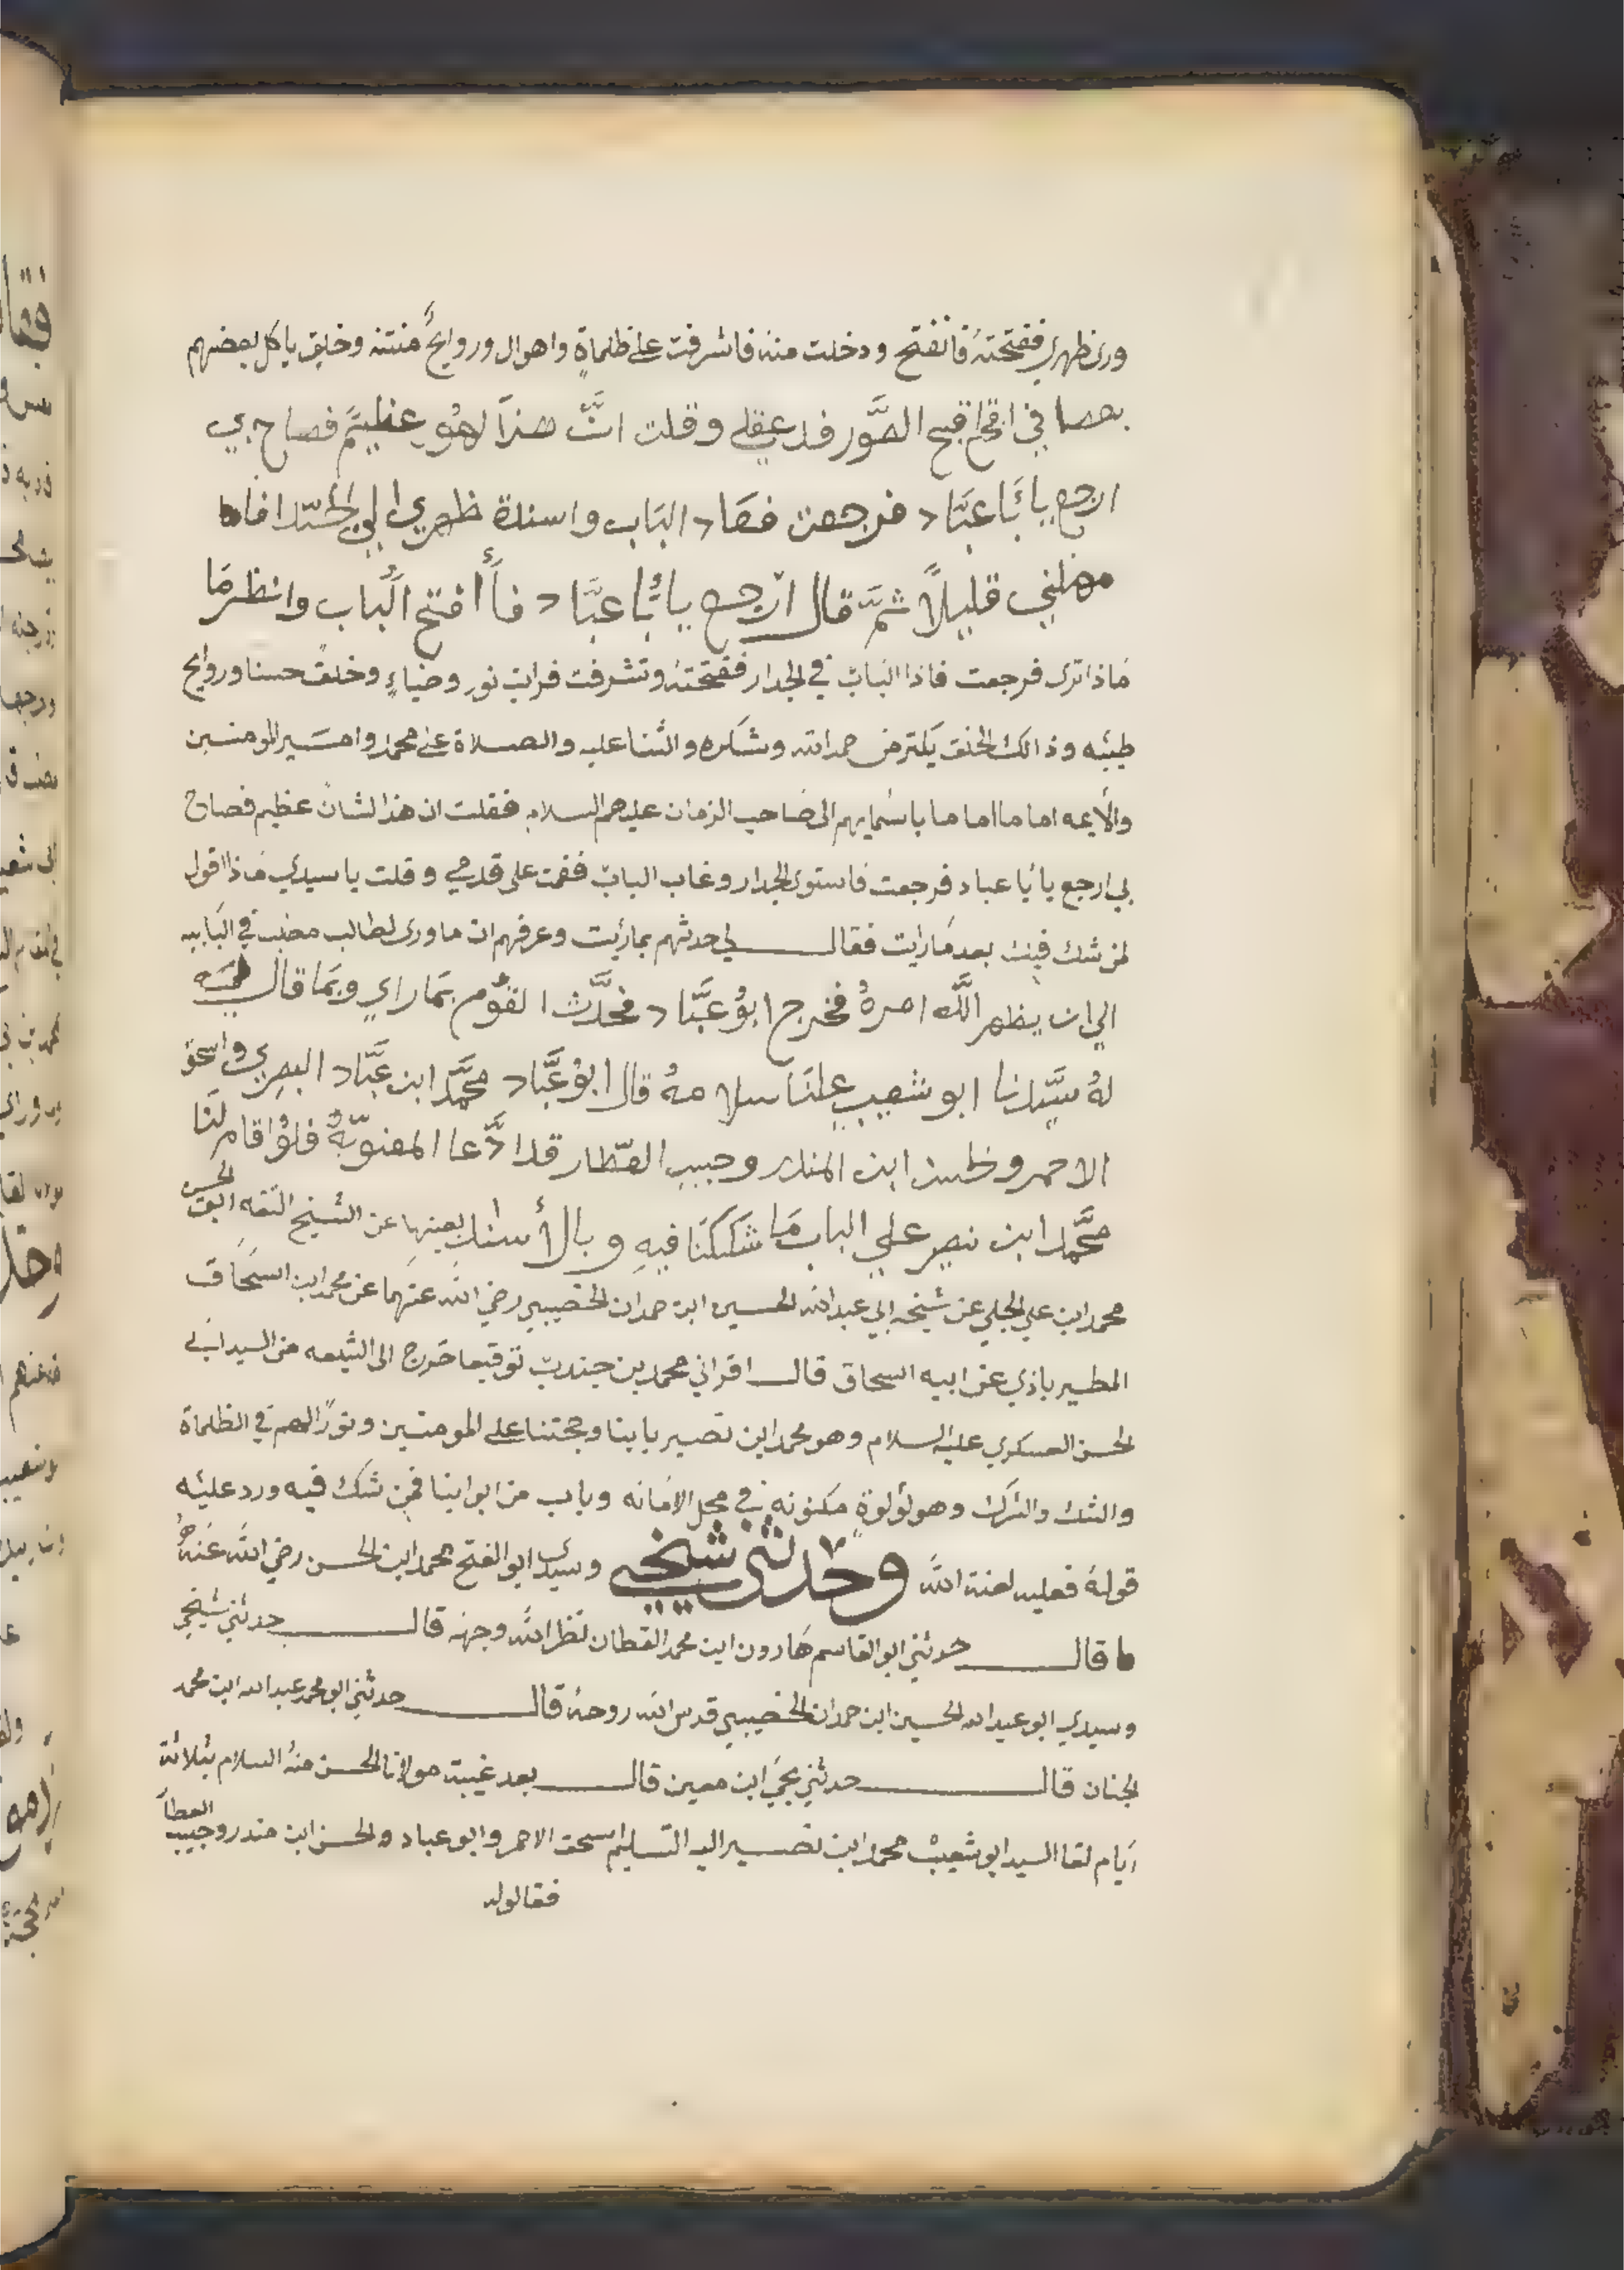 ورى ظهري ففتحتهُ فانفتح ودخلت منه فاشرفت على ظلماةٍ واهوال وروايحٌ منتنه وخلق ياكل بعضهم
بعضا في اقبح الصَّور فذ عقلي وقلت انَّ هذا لهُو عظيمٌ فصاح بي
ارجع يا ابَا عبَّاد فرجعت فعَاد البَاب واسندة ظهري الي
مهلني قليلاً ثمَّ قال ارجع يا ابَا عبَّاد فأافتح البَاب وانظر مَا
مَاذا ترى فرجعت فاذا البَابُ في الجدار ففتحتهُ وتشرفت فرايت نورٍ وضياءٍ وخلقً حسنا وروايح
طيبه وذالك الخلق يكثر من حمد الله وشكره والثنا عليه والصلاة على محمد وامير المومنين
والأيمه اماما اماما باسمايهم الى صَاحب الزمان عليهم السلام فقلت ان هذا لشان عظيم فصاح
بي ارجع يا أبا عباد فرجعت فاستوى الجدار وغاب البابُ فقمت على قدمي وقلت يا سيدي مَاذا اقول
لمن شك فيك بعد مَا رايت فقال لي حدثهم بما رأيت وعرفهم ان ما ورى لطالب مضت في البابيه
الي ان يظهر الله امرهُ فخرج ابوُ عبَّاد فحدَّث القوُم بمَا راي وبمَا قال
لهُ سيَّدنا ابو شعيب علينَا سلامهُ قال ابوُ عبَّاد محمَّد ابن عبَّاد البصري واسحق
الاحمر وحسن ابن المنذر وحبيب العطَّار قد ادَّعا المعنويّةُ فلوُ اقام لنَا
محمَّد ابن نصير علي الباب مَا شككنَا فيهِ وبالأسناد بعينها عن الشيخ الثقه ابو الحسن
محمد ابن علي الجلي عن شيخه ابي عبد الله الحسين ابن حمدان الخصيبي رضي الله عنهما عن محمد ابن اسحَاق
المطيرباذي عن ابيه اسحاق قال اقراني محمد بن جندب توقيعا خرج الى الشيعه من السيد ابي
الحسن العسكري عليه السلام وهو محمد ابن نصير بابنا وحجتنا على المومنين ونورًا لهم في الظلماة
والشك والشرك وهو لؤلوةٍ مكنونه في محل الامانه وباب من ابوابنا فمن شك فيه ورد عليه
قولهُ فعليه لعنة الله وحَدثني شيخي وسيدي ابو الفتح محمد ابن الحسن رضي الله عَنهُ
قال حدثني ابو القاسم هَارون ابن محمد القطان نظر الله وجهه قال حدثني شيخي
وسيدي ابو عبد الله الحسين ابن حمدان الخصيبي قدس الله روحهُ قال حدثني ابو محمد عبد الله ابن محمد
الجنان قال حدثني يحيَ ابن معين قال بعد غيبة مولانا الحسن منهُ السلام بثلاثة
ايام لقا السيد ابو شعيبْ محمد ابن نصير اليه التسليم اسحق الاحمر وابو عباد والحسن ابن منذر وحبيب العطار
فقالوله